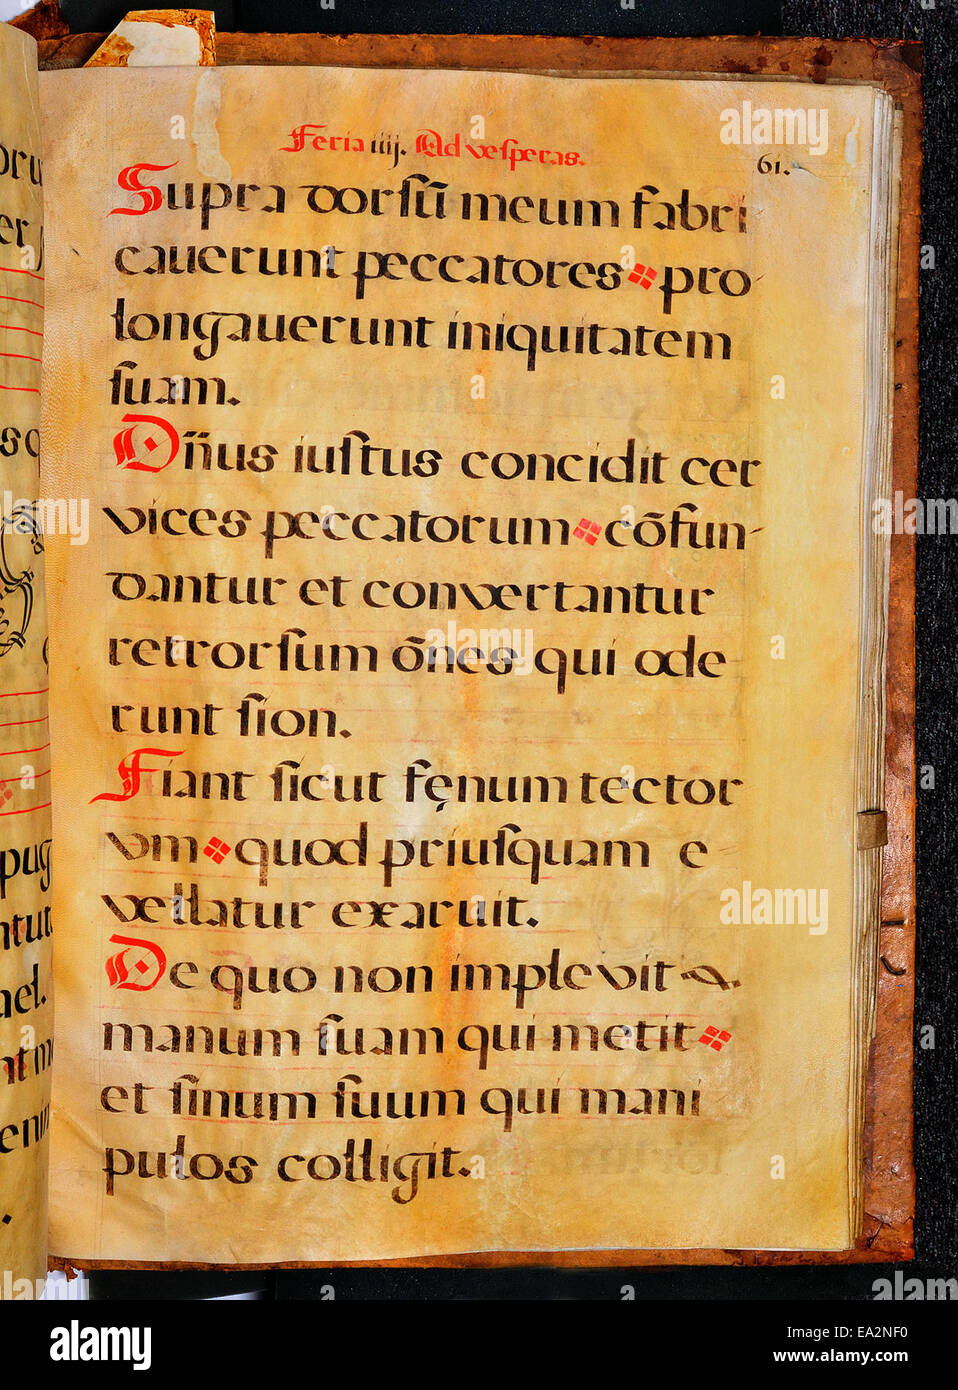 Feria iiij. Ad vesperas.
61.
Supra dorsũ meum fabri
cauerunt peccatores pro-
longauerunt iniquitatem
suam.
Dñus iustus concidit cer
vices peccatorum cõfun-
dantur et convertantur
retrorsum õnes qui ode
runt sion.
Fiant sicut fęnum tector
vm quod priusquam e-
vellatur exaruit.
De quo non implevit
manum suam qui metit
et sinum suum qui mani
pulos colligit.
alamy
a
alamy
www.alamy.com
Image ID: EA2NF0